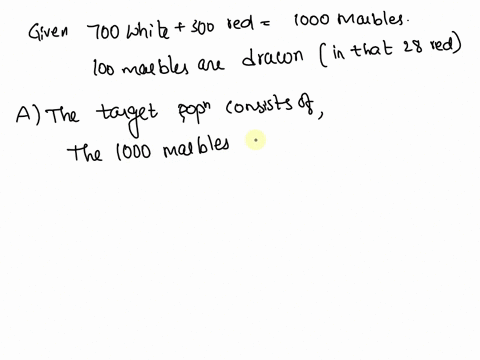 Given 700 white + 300 red = 1000 Marbles.
100 marbles are drawn (in that 28 red)
A) The target popn consists of,
The 1000 marbles